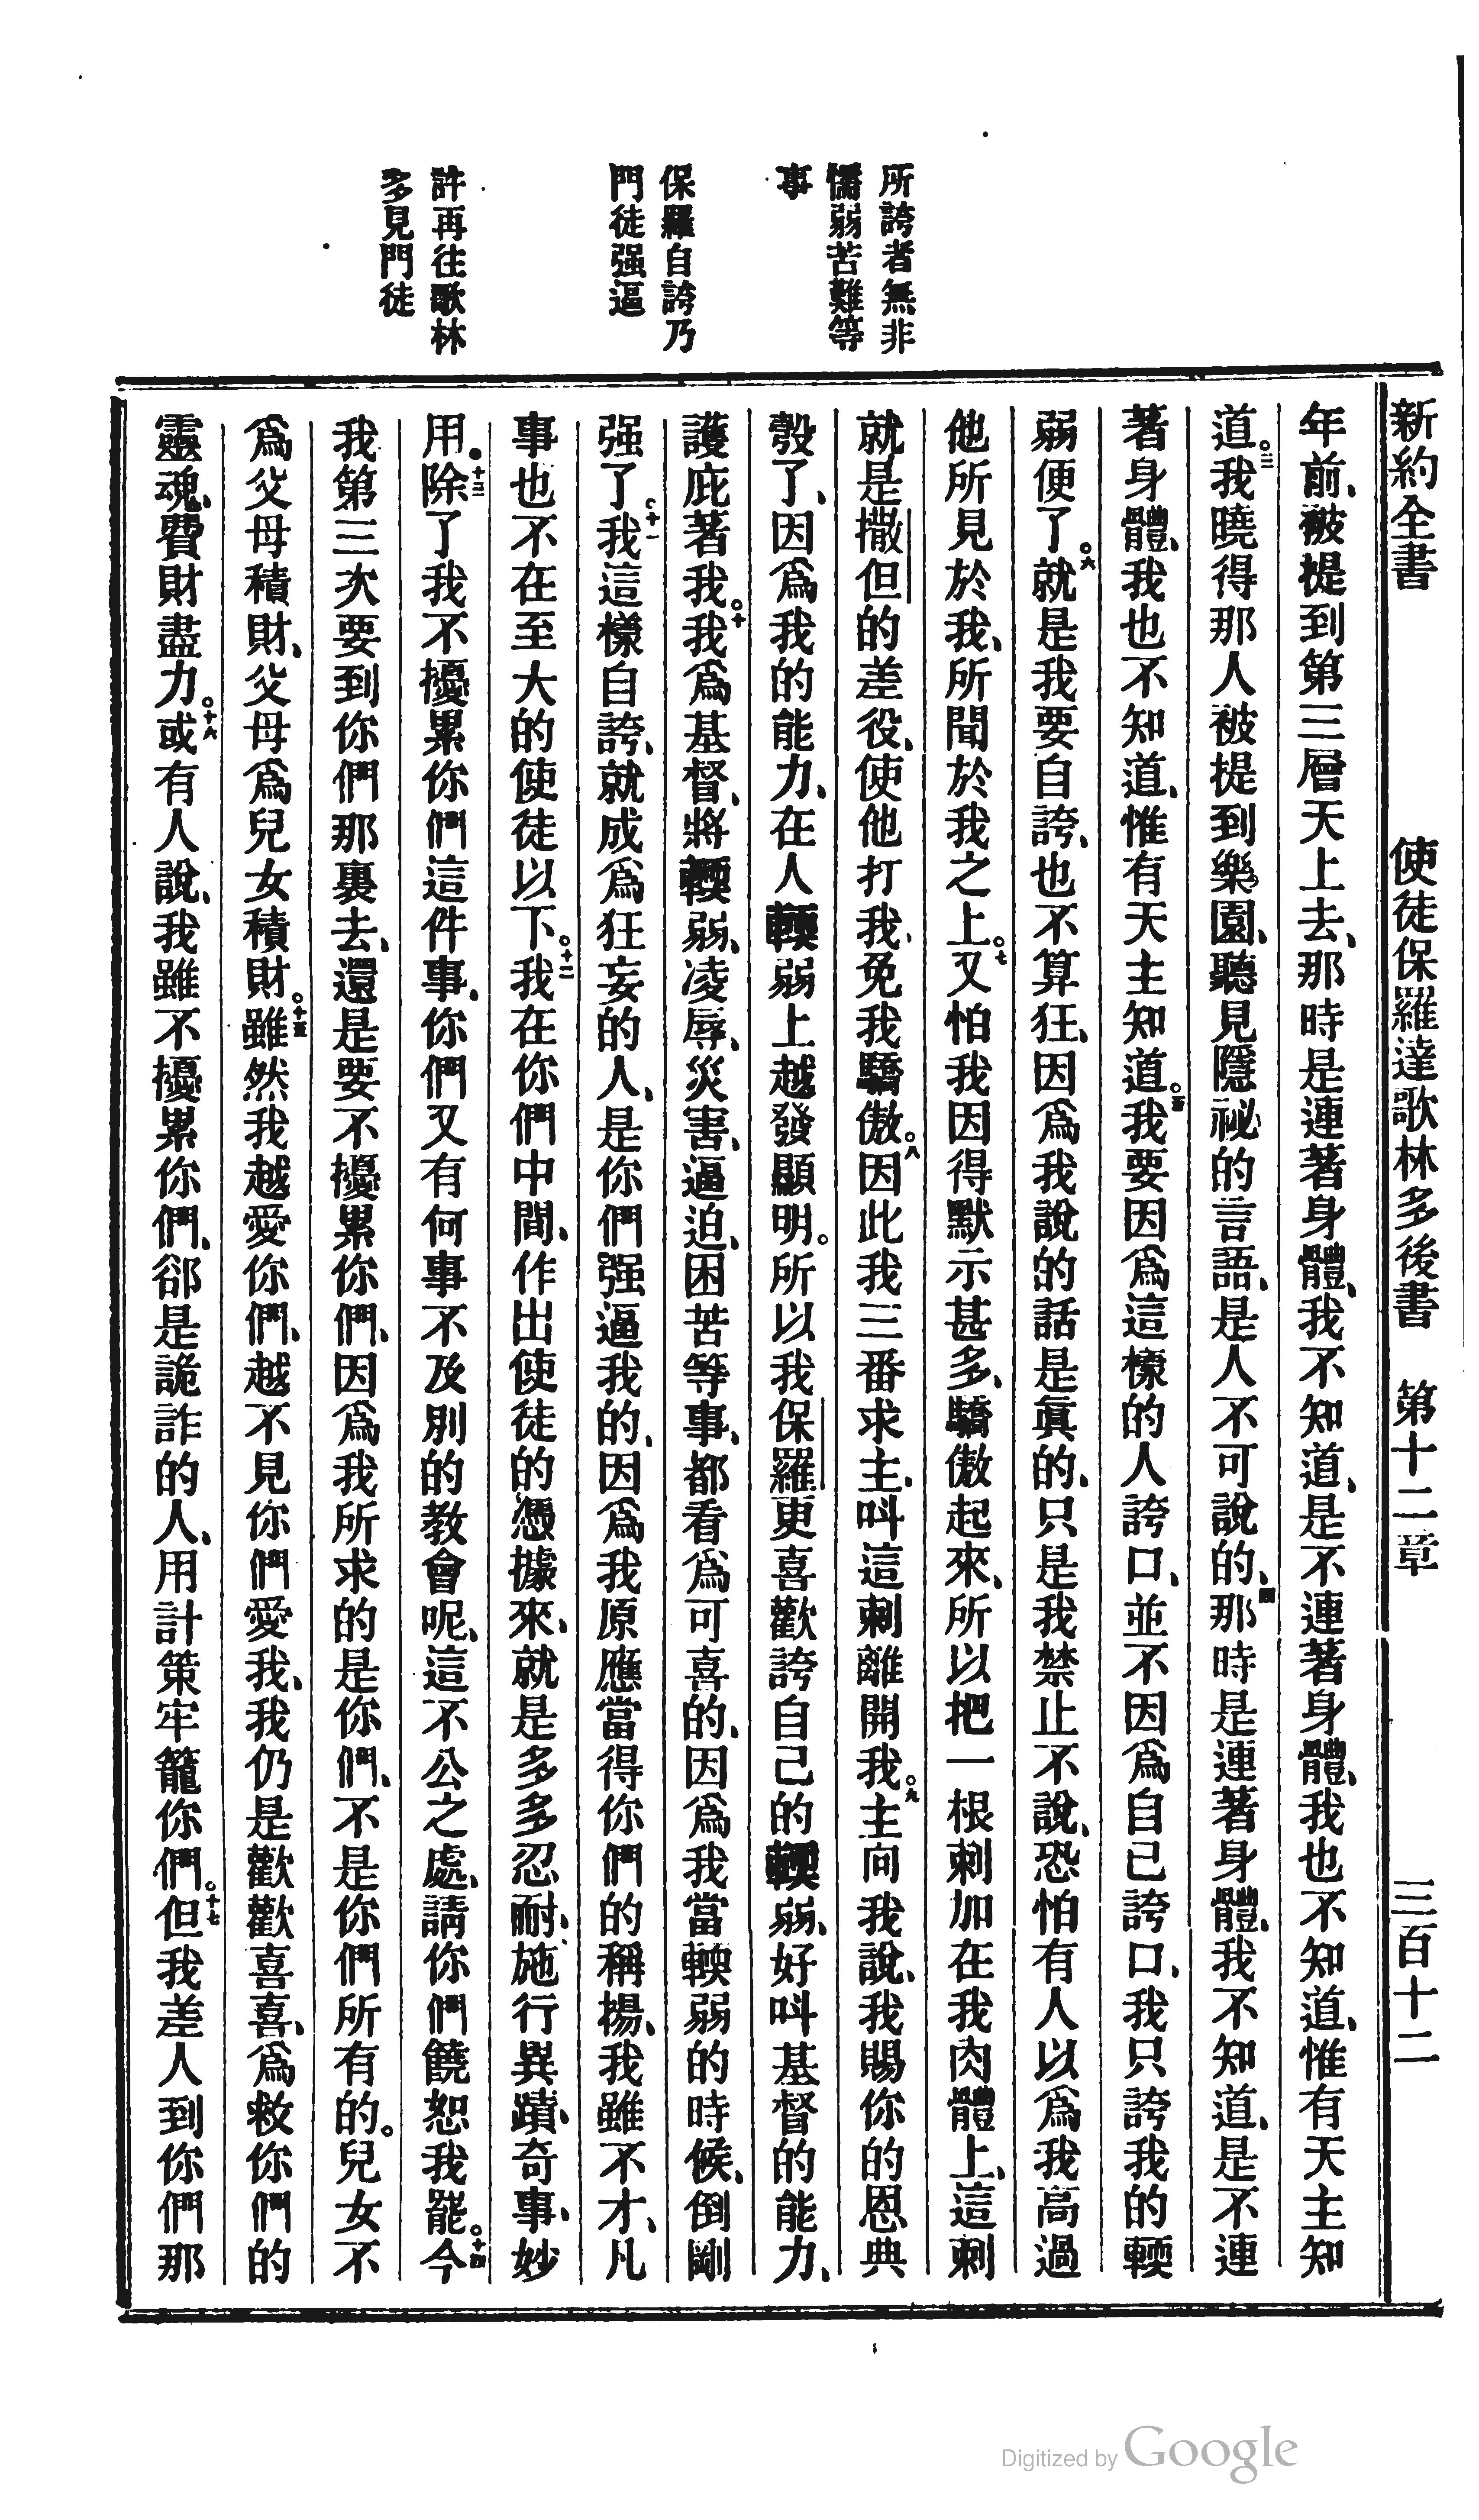 新約全書　使徒保羅達歌林多後書　第十二章　三百十二
所誇者無非
懦弱苦難等
事
保羅自誇乃
門徒强逼
許再往歌林
多見門徒
年前、被提到第三層天上去、那時是連著身體、我不知道、是不連著身體、我也不知道、惟有天主知
道。三我曉得那人被提到樂園、聽見隱祕的言語、是人不可說的、四那時是連著身體、我不知道、是不連
著身體、我也不知道、惟有天主知道。五我要因爲這樣的人誇口、並不因爲自己誇口、我只誇我的輭
弱便了。六就是我要自誇、也不算狂、因爲我說的話是眞的、只是我禁止不說、恐怕有人以爲我高過
他所見於我、所聞於我之上。七又怕我因得默示甚多、驕傲起來、所以把一根刺加在我肉體上、這刺
就是撒但的差役、使他打我、免我驕傲。八因此我三番求主、呌這刺離開我。九主向我說、我賜你的恩典
彀了、因爲我的能力、在人輭弱上越發顯明。所以我保羅更喜歡誇自己的輭弱、好呌基督的能力、
護庇著我。十我爲基督、將輭弱、凌辱、災害、逼迫、困苦等事、都看爲可喜的、因爲我當輭弱的時候、倒剛
强了。十一我這樣自誇、就成爲狂妄的人、是你們强逼我的、因爲我原應當得你們的稱揚、我雖不才、凡
事也不在至大的使徒以下。十二我在你們中間、作出使徒的憑據來、就是多多忍耐、施行異蹟、奇事、妙
用。十三除了我不擾累你們這件事、你們又有何事不及別的教會呢、這不公之處、請你們饒恕我罷。十四今
我第三次要到你們那裏去、還是要不擾累你們、因爲我所求的是你們、不是你們所有的。兒女不
爲父母積財、父母爲兒女積財。十五雖然我越愛你們、越不見你們愛我、我仍是歡歡喜喜、爲救你們的
靈魂、費財盡力。十六或有人說、我雖不擾累你們、郤是詭詐的人、用計策牢籠你們。十七但我差人到你們那
Digitized by Google